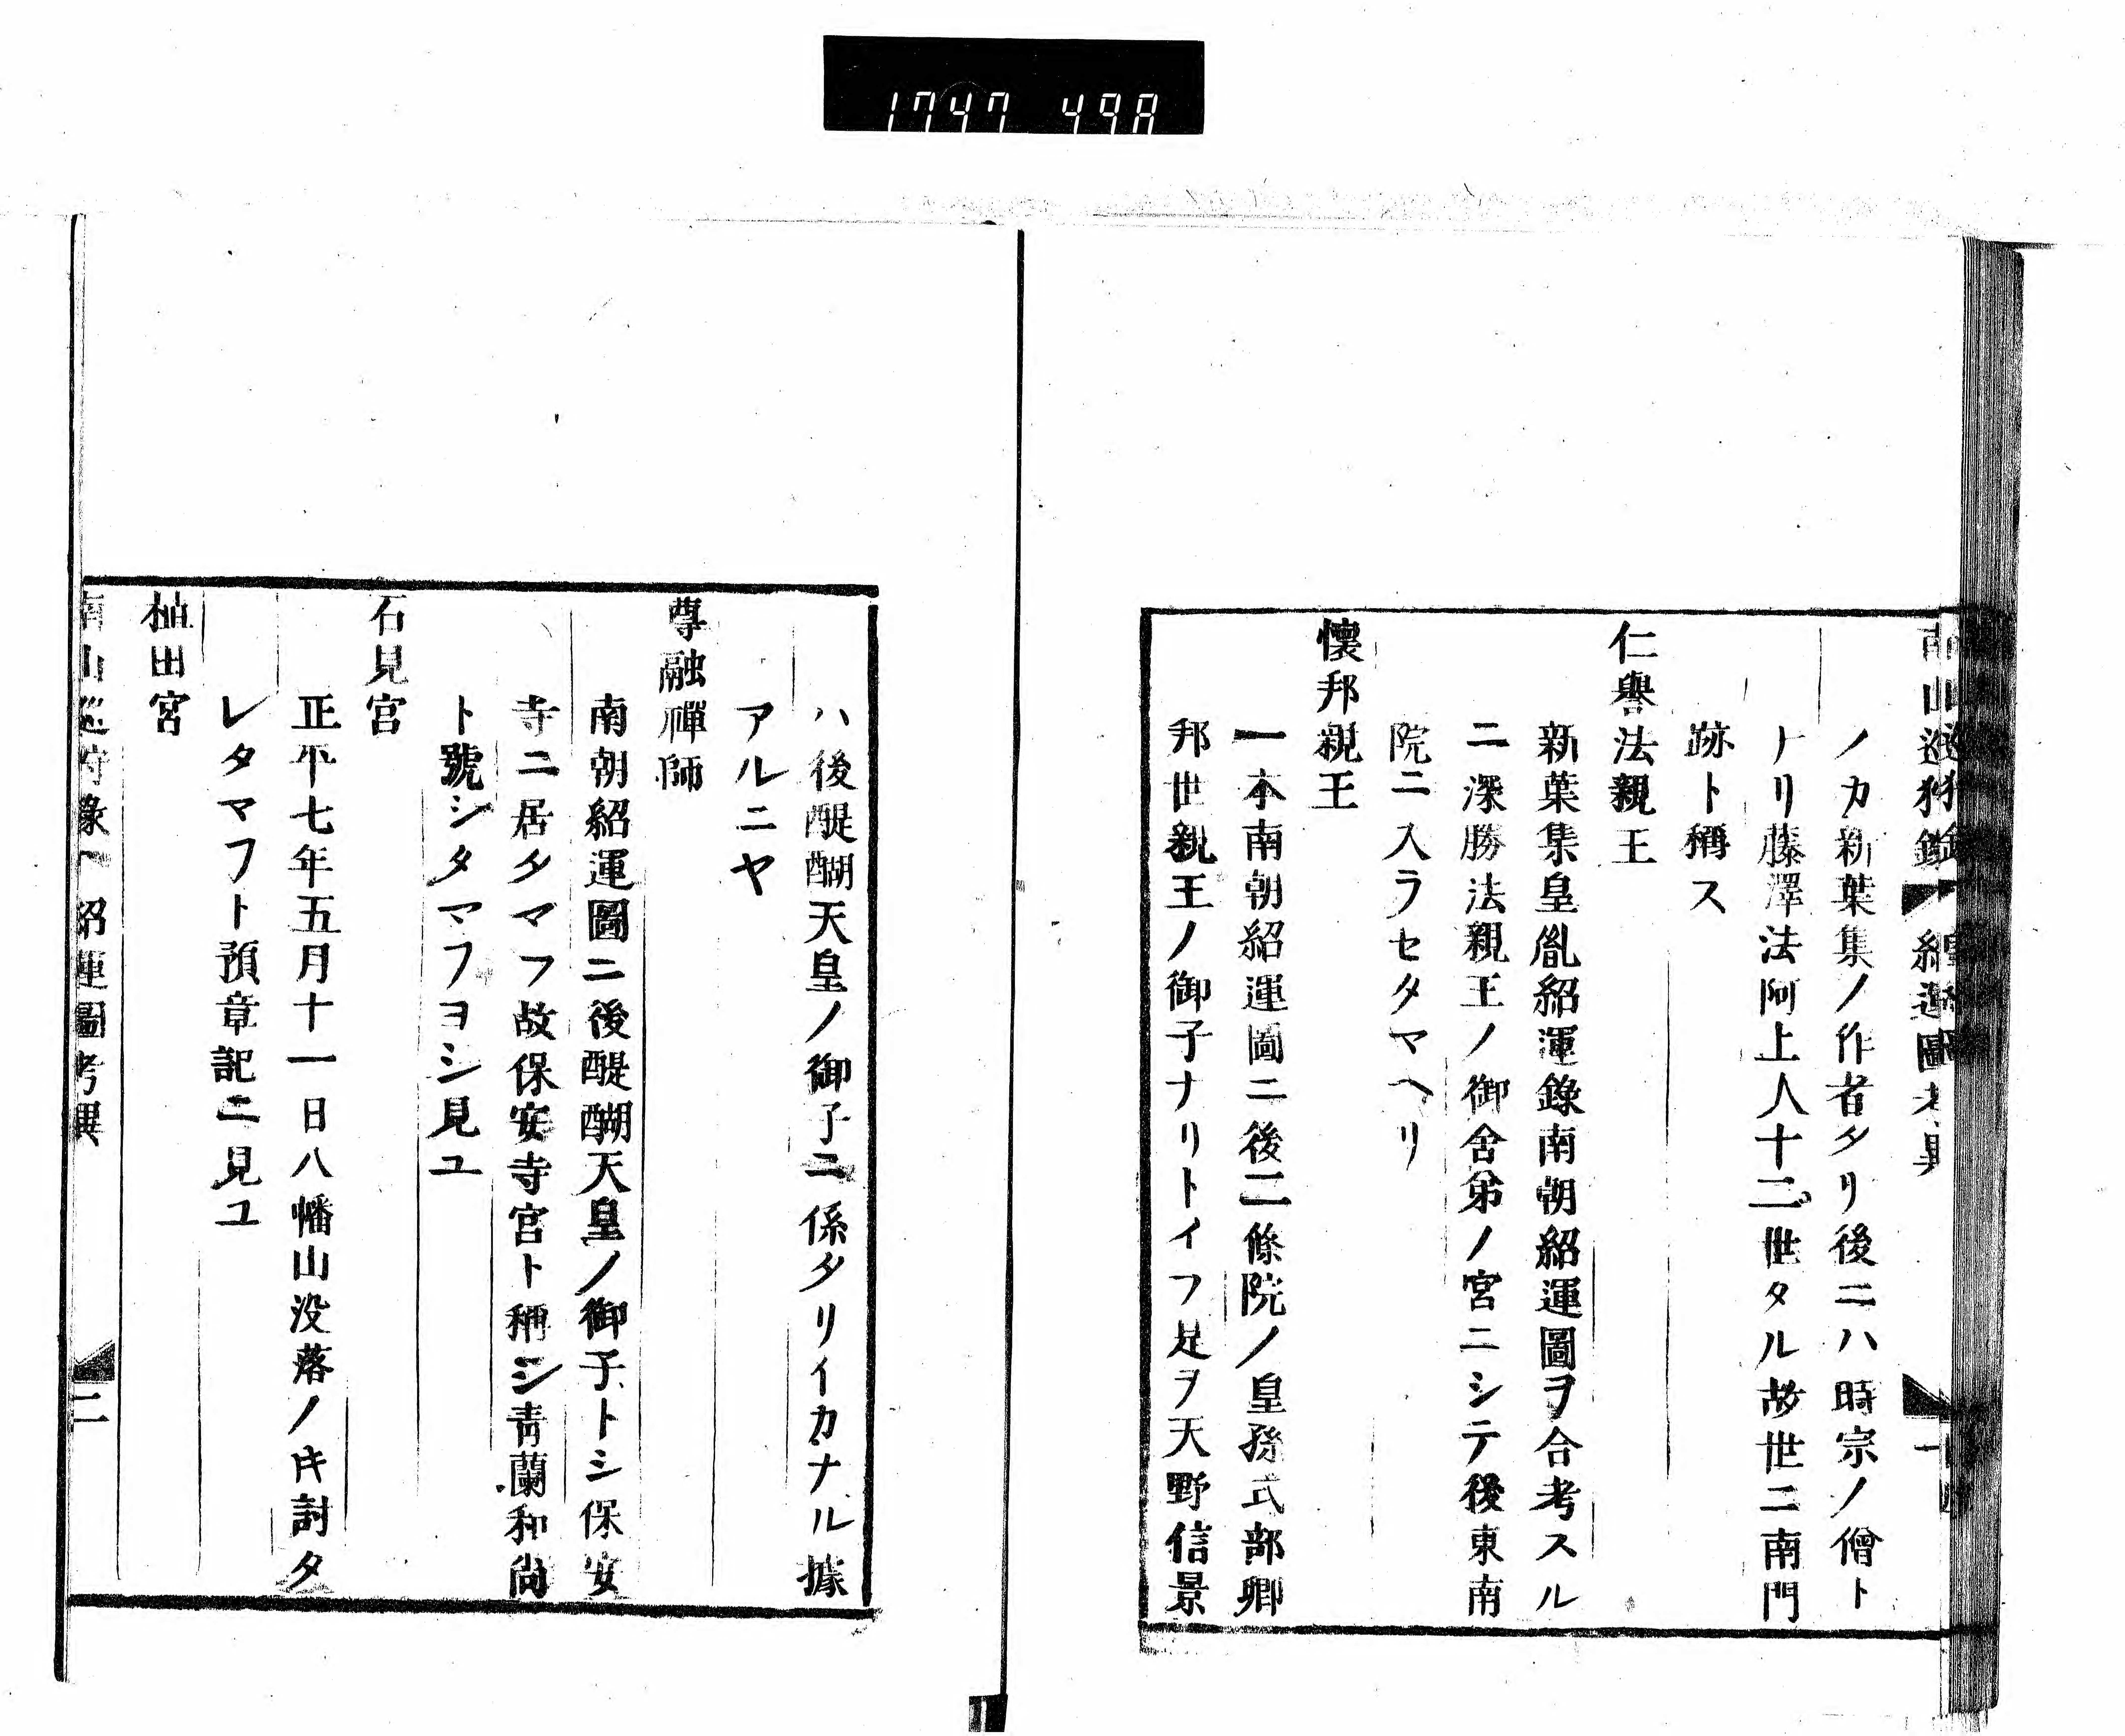 1747 498
南山巡狩錄 紹運圖考異 一
ノカ新葉集ノ作者タリ後ニハ時宗ノ僧ト
ナリ藤澤法阿上人十二世タル故世ニ南門
跡ト稱ス
仁譽法親王
新葉集皇胤紹運錄南朝紹運圖ヲ合考スル
ニ深勝法親王ノ御舍弟ノ宮ニシテ後東南
院ニ入ラセタマヘリ
懷邦親王
一本南朝紹運圖ニ後二條院ノ皇孫式部卿
邦世親王ノ御子ナリトイフ是ヲ天野信景
ハ後醍醐天皇ノ御子ニ係タリイカナル據
アルニヤ
尊融禪師
南朝紹運圖ニ後醍醐天皇ノ御子トシ保安
寺ニ居タマフ故保安寺宮ト稱シ靑蘭和尙
ト號シタマフヨシ見ユ
石見宮
正平七年五月十一日八幡山没落ノ𪜈討タ
レタマフト預章記ニ見ユ
植田宮
南山巡狩錄 紹運圖考異 二